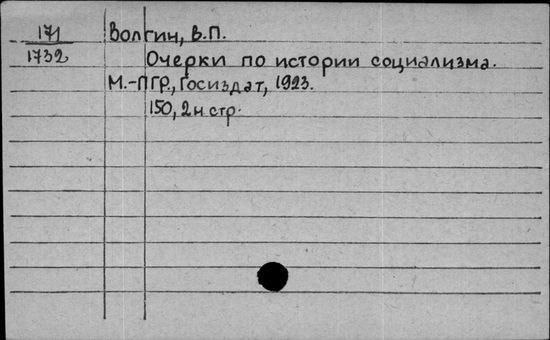 171 Волгин, В.П.
1732 Очерки по истории социализма.
М.-ПГР., Госиздат, 1923.
150, 2н стр.